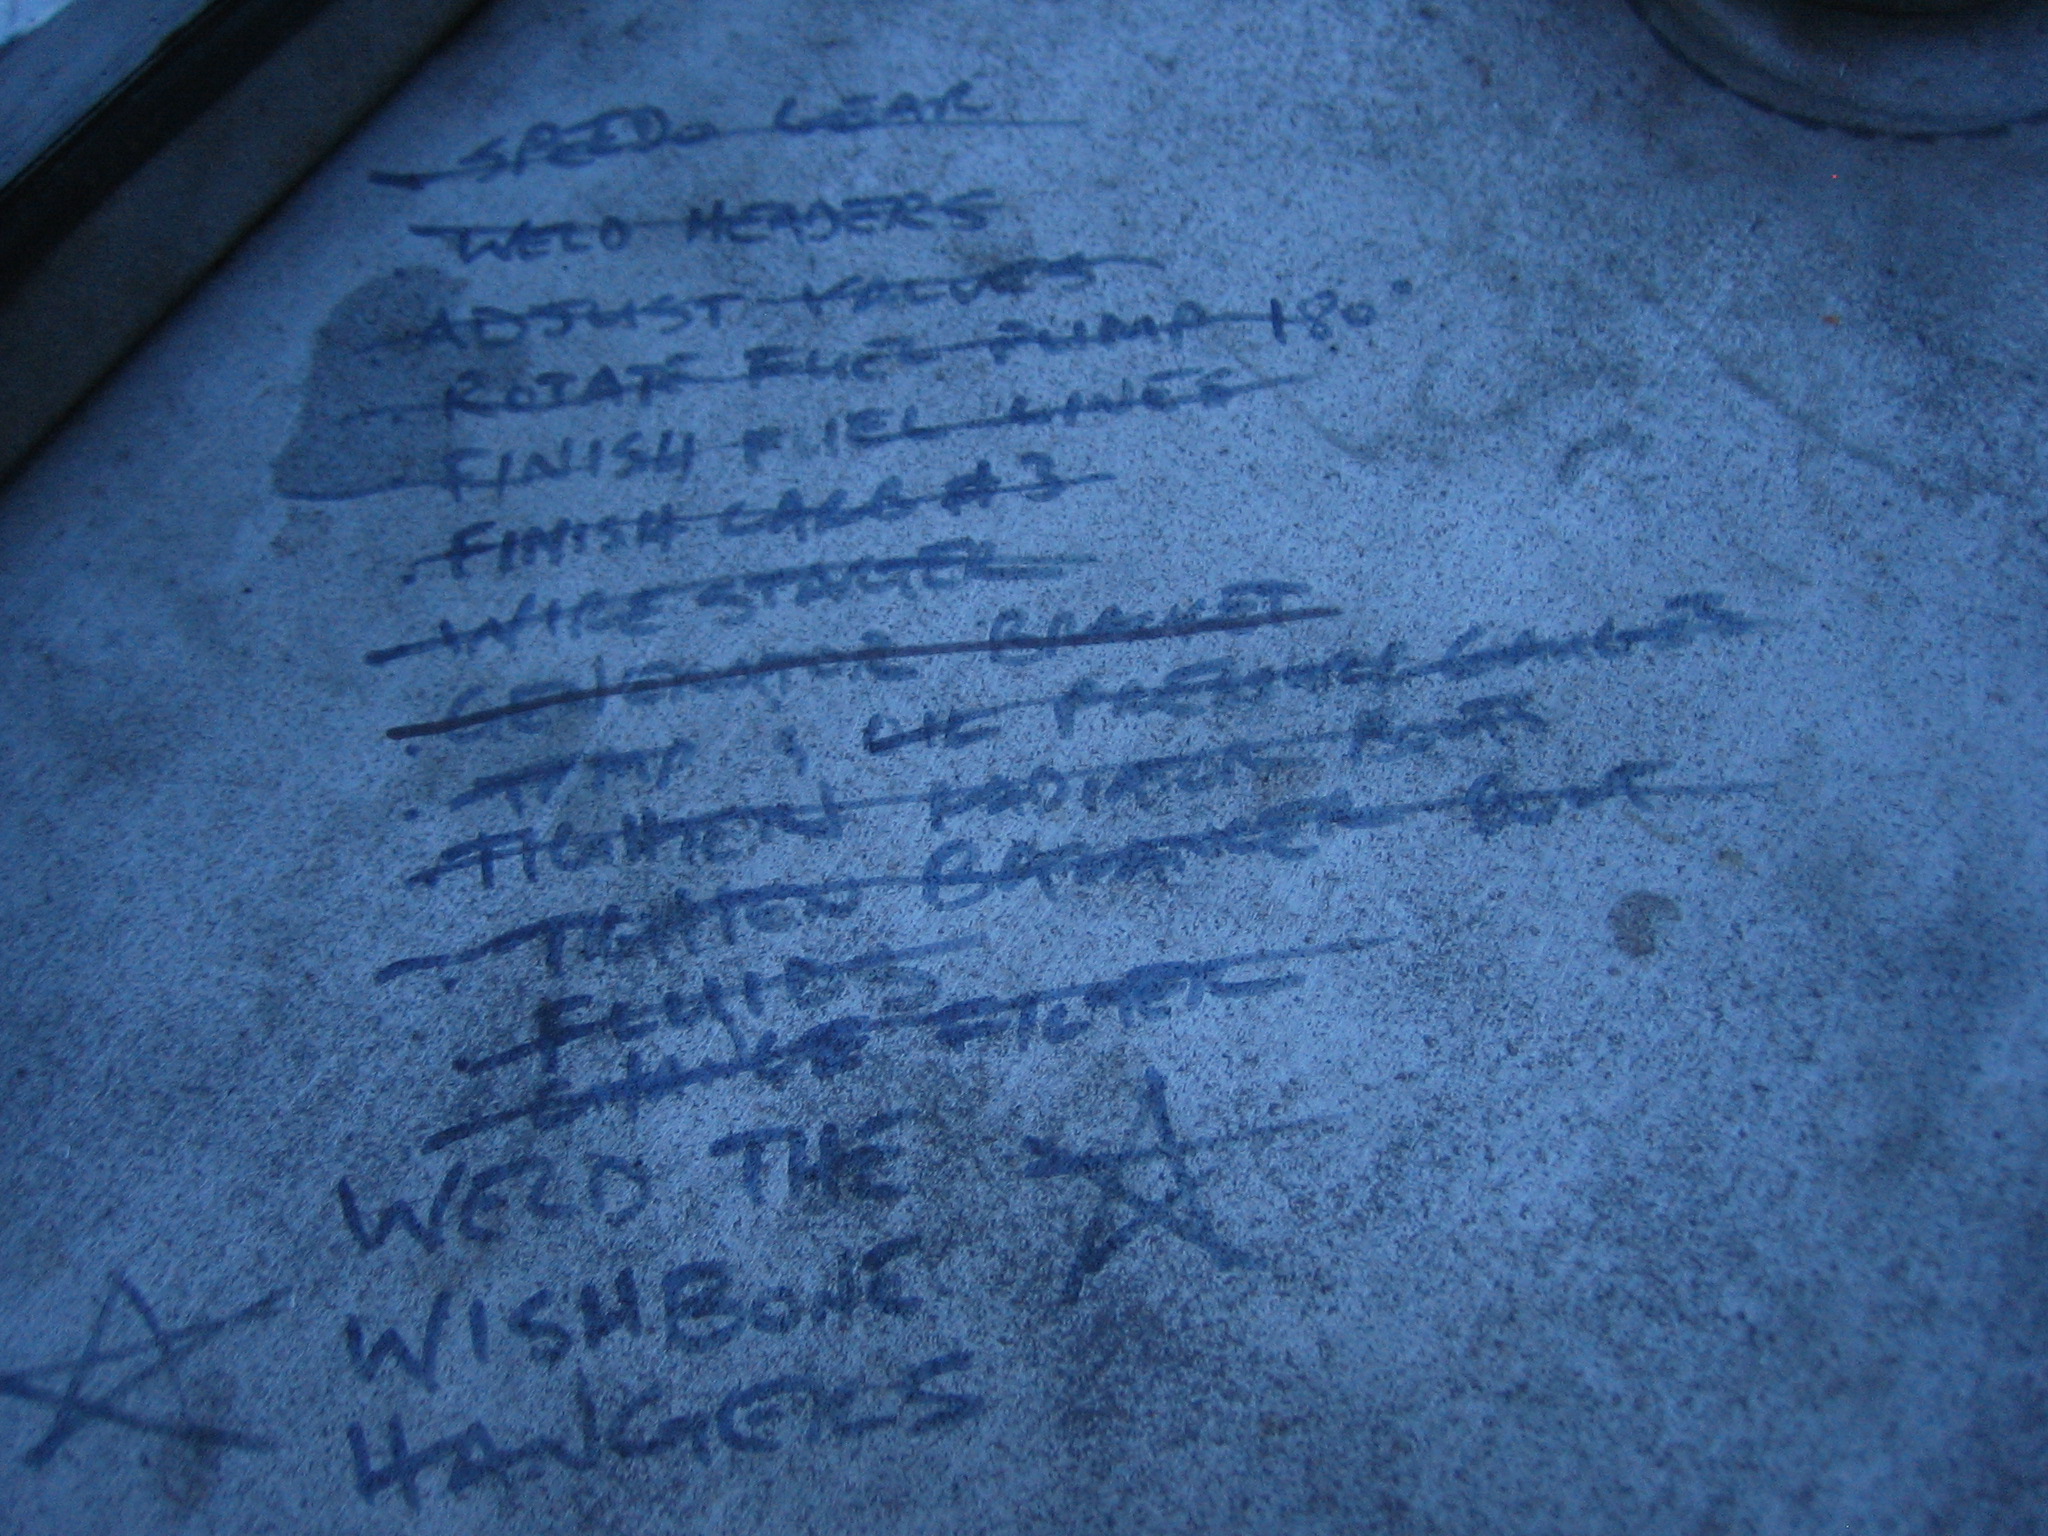 SPEEDO GEAR
WELD HEADERS
ADJUST VALVES
ROTATE FUEL PUMP 180°
FINISH FUEL LINES
FINISH CARB #3
WIRE STARTER
BRACKET
TIGHTEN
TIGHTEN
FLUIDS
FILTER
WELD THE
WISHBONE
HANGERS